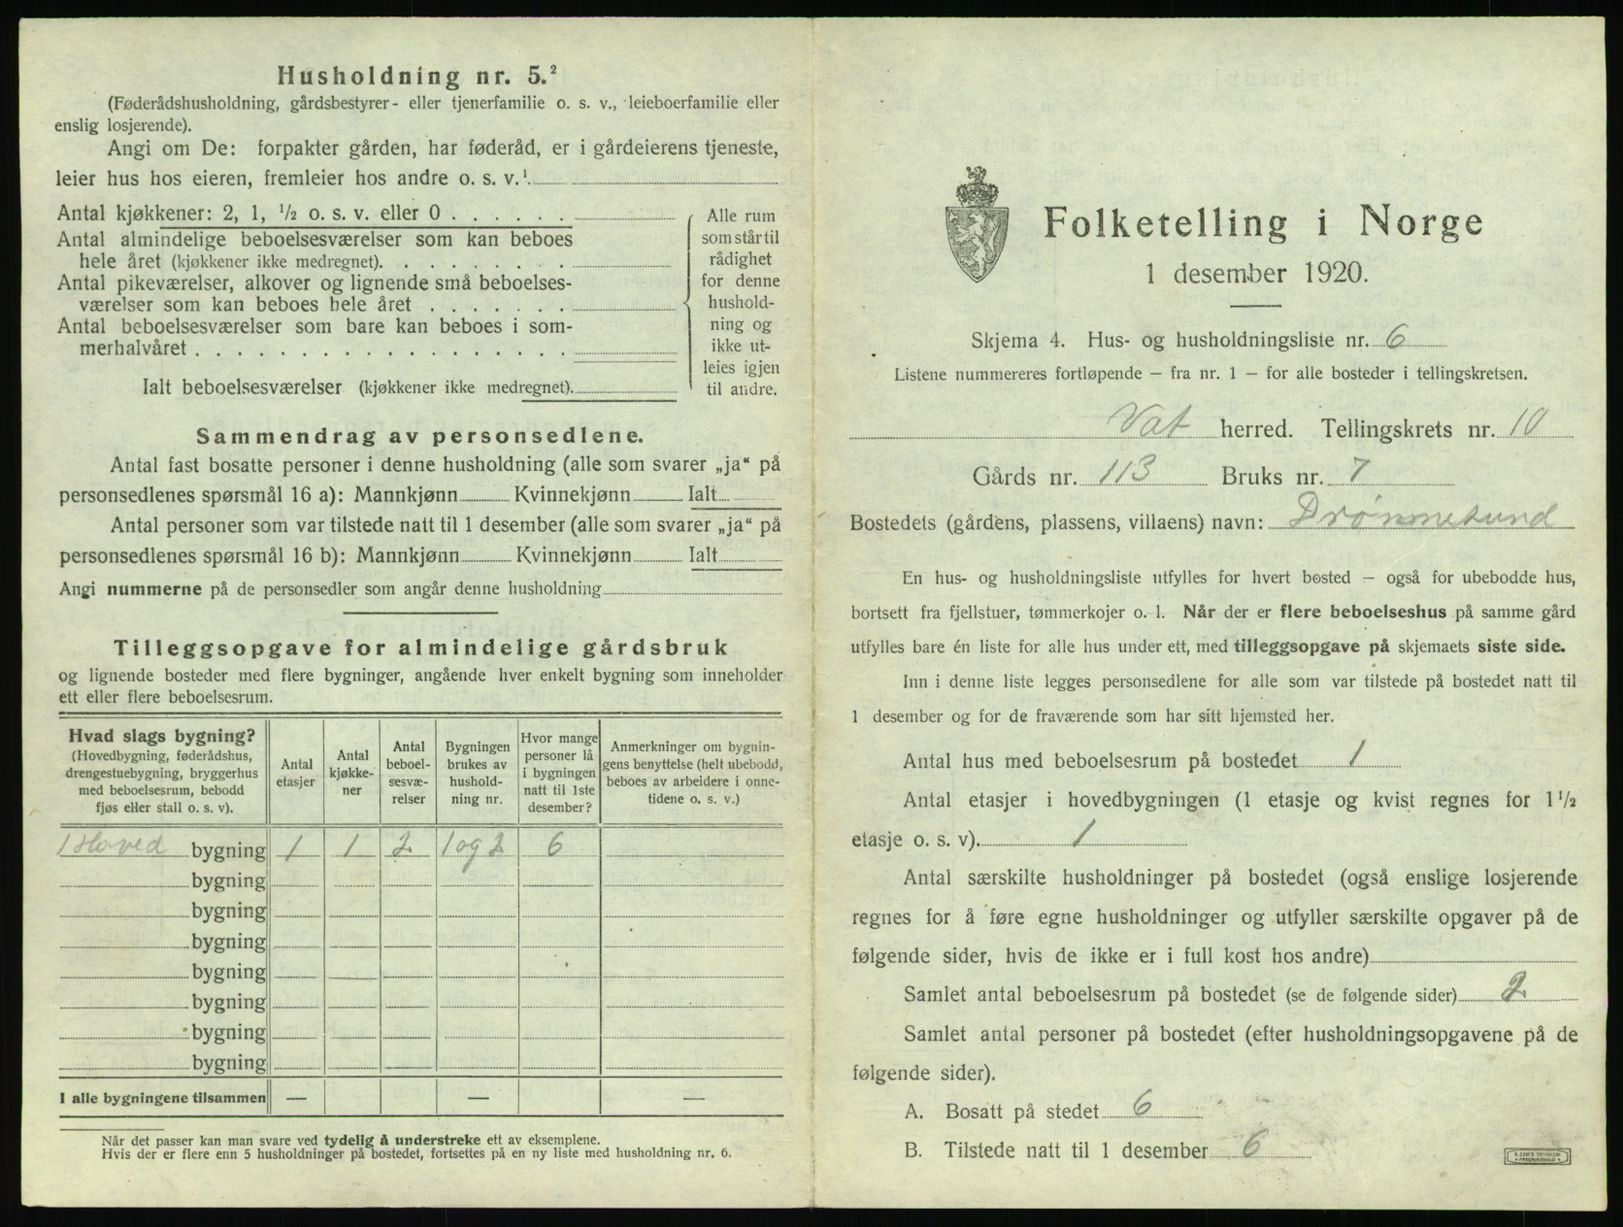 Husholdning nr. 5.²
(Føderådshusholdning, gårdsbestyrer- eller tjenerfamilie o. s. v., leieboerfamilie eller
enslig losjerende).
Angi om De: forpakter gården, har føderåd, er i gårdeierens tjeneste,
leier hus hos eieren, fremleier hos andre o. s. v.¹
Antal kjøkkener: 2, 1, ½ o. s. v. eller 0
Antal almindelige beboelsesværelser som kan beboes
hele året (kjøkkener ikke medregnet)
Antal pikeværelser, alkover og lignende små beboelses-
værelser som kan beboes hele året
Antal beboelsesværelser som bare kan beboes i som-
merhalvåret
Ialt beboelsesværelser (kjøkkener ikke medregnet)
Alle rum
som står til
rådighet
for denne
hushold-
ning og
ikke ut-
leies igjen
til andre.
Sammendrag av personsedlene.
Antal fast bosatte personer i denne husholdning (alle som svarer „ja“ på
personsedlenes spørsmål 16 a): Mannkjønn Kvinnekjønn Ialt
Antal personer som var tilstede natt til 1 desember (alle som svarer „ja“ på
personsedlenes spørsmål 16 b): Mannkjønn Kvinnekjønn Ialt
Angi nummerne på de personsedler som angår denne husholdning
Tilleggsopgave for almindelige gårdsbruk
og lignende bosteder med flere bygninger, angående hver enkelt bygning som inneholder
ett eller flere beboelsesrum.
Hvad slags bygning?
(Hovedbygning, føderådshus,
drengestuebygning, bryggerhus
med beboelsesrum, bebodd
fjøs eller stall o. s. v).
Antal
etasjer
Antal
kjøkke-
ner
Antal
beboel-
sesvæ-
relser
Bygningen
brukes av
hushold-
ning nr.
Hvor mange
personer lå
i bygningen
natt til 1ste
desember?
Anmerkninger om bygnin-
gens benyttelse (helt ubebodd,
beboes av arbeidere i onne-
tidene o. s. v.)
1 Hoved bygning 1 1 2 1 og 2 6
bygning
bygning
bygning
bygning
bygning
bygning
bygning
I alle bygningene tilsammen — — —
Når det passer kan man svare ved tydelig å understreke ett av eksemplene.
Hvis der er flere enn 5 husholdninger på bostedet, fortsettes på en ny liste med husholdning nr. 6.
Folketelling i Norge
1 desember 1920.
Skjema 4. Hus- og husholdningsliste nr. 6
Listene nummereres fortløpende — fra nr. 1 — for alle bosteder i tellingskretsen.
Vat herred. Tellingskrets nr. 10
Gårds nr. 113 Bruks nr. 7
Bostedets (gårdens, plassens, villaens) navn: Drønnesund
En hus- og husholdningsliste utfylles for hvert bosted — også for ubebodde hus,
bortsett fra fjellstuer, tømmerkojer o. l. Når der er flere beboelseshus på samme gård
utfylles bare én liste for alle hus under ett, med tilleggsopgave på skjemaets siste side.
Inn i denne liste legges personsedlene for alle som var tilstede på bostedet natt til
1 desember og for de fraværende som har sitt hjemsted her.
Antal hus med beboelsesrum på bostedet 1
Antal etasjer i hovedbygningen (1 etasje og kvist regnes for 1½
etasje o. s. v). 1
Antal særskilte husholdninger på bostedet (også enslige losjerende
regnes for å føre egne husholdninger og utfyller særskilte opgaver på de
følgende sider, hvis de ikke er i full kost hos andre)
Samlet antal beboelsesrum på bostedet (se de følgende sider) 2
Samlet antal personer på bostedet (efter husholdningsopgavene på de
følgende sider).
A. Bosatt på stedet 6
B. Tilstede natt til 1 desember 6